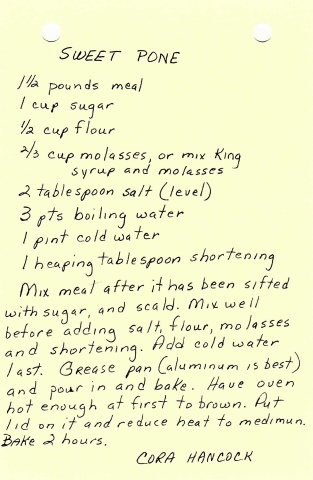 SWEET PONE
1 1/2 pounds meal
1 cup sugar
1/2 cup flour
2/3 cup molasses, or mix King
syrup and molasses
2 tablespoon salt (level)
3 pts boiling water
1 pint cold water
1 heaping tablespoon shortening
Mix meal after it has been sifted
with sugar, and scald. Mix well
before adding salt, flour, molasses
and shortening. Add cold water
last. Grease pan (aluminum is best)
and pour in and bake. Have oven
hot enough at first to brown. Put
lid on it and reduce heat to medimun.
Bake 2 hours.
CORA HANCOCK